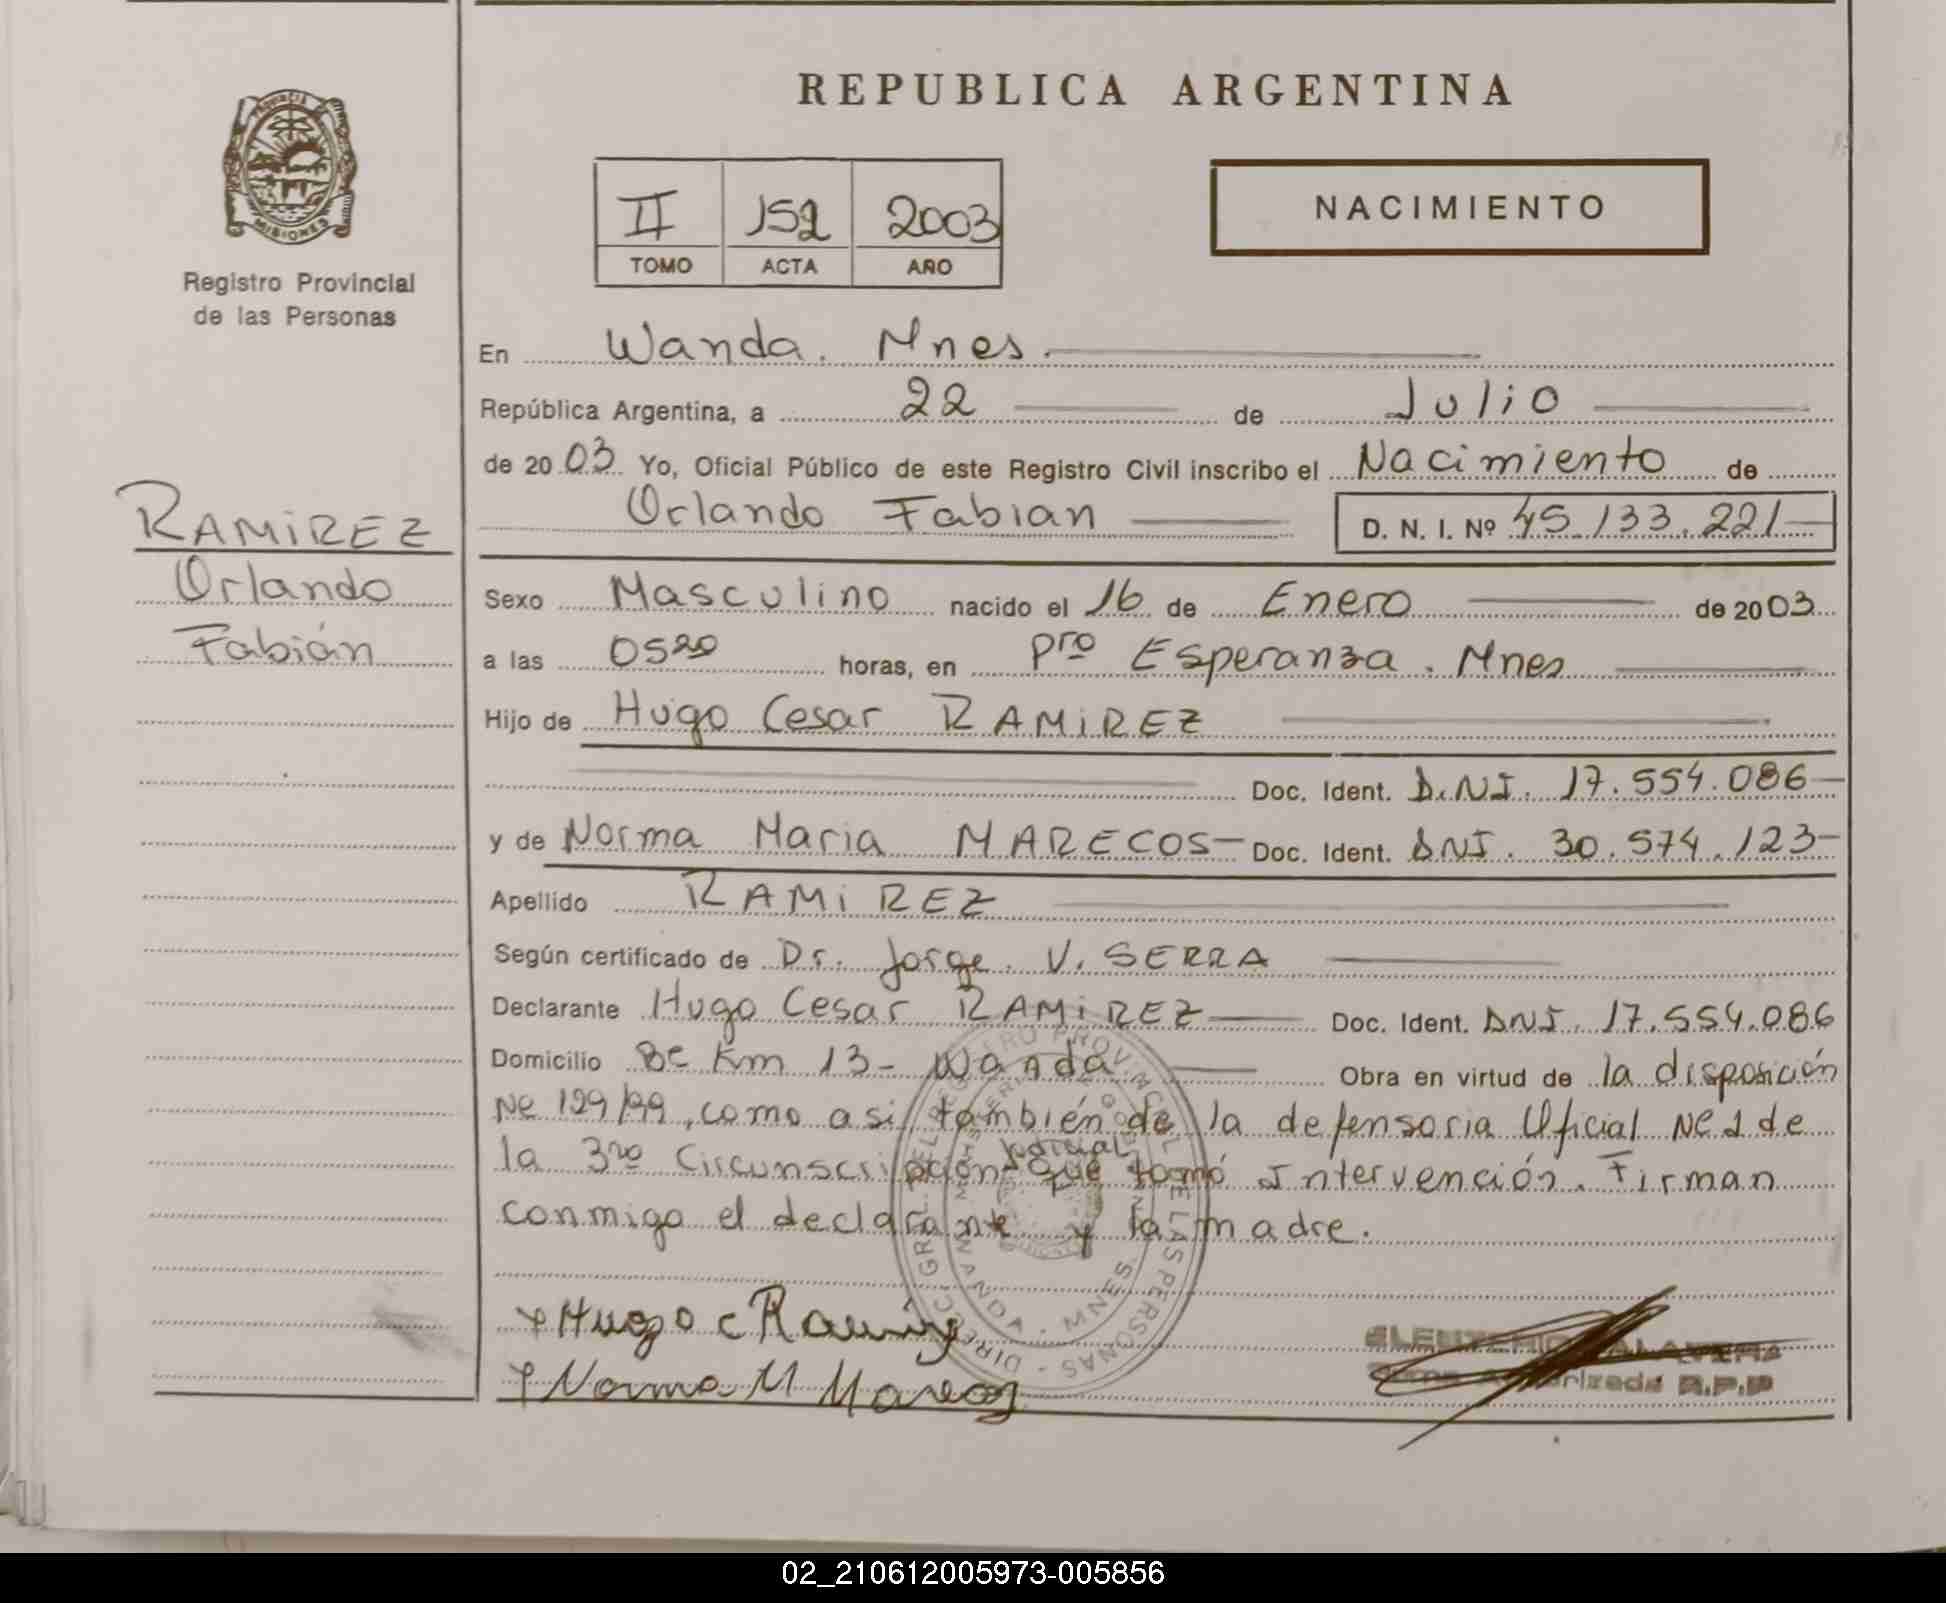 REPUBLICA ARGENTINA
PROVINCIA
MISIONES
Registro Provincial
de las Personas
II 152 2003
TOMO ACTA AÑO
NACIMIENTO
En Wanda. Mnes.
República Argentina, a 22 de Julio
de 2003 Yo, Oficial Público de este Registro Civil inscribo el Nacimiento de
Orlando Fabian D. N. I. Nº 45.133.221
RAMIREZ
Orlando
Fabián
Sexo Masculino nacido el 16 de Enero de 2003
a las 0520 horas, en Pto Esperanza. Mnes
Hijo de Hugo Cesar RAMIREZ
Doc. Ident. D.NI. 17.554.086
y de Norma Maria MARECOS Doc. Ident. DNI. 30.574.123
Apellido RAMIREZ
Según certificado de Dr. Jorge. V. SERRA
Declarante Hugo Cesar RAMIREZ Doc. Ident. DNI. 17.554.086
Domicilio Bº Km 13- Wanda Obra en virtud de la disposición
Nº 129/99, como asi también de la defensoria Oficial Nº 1 de
la 3ra Circunscripción Judicial, que tomó Intervención. Firman
conmigo el declarante y la madre.
+Hugo c Ramirez
+Norma M Marecos
R.P.P
WANDA - MNES.
02_210612005973-005856